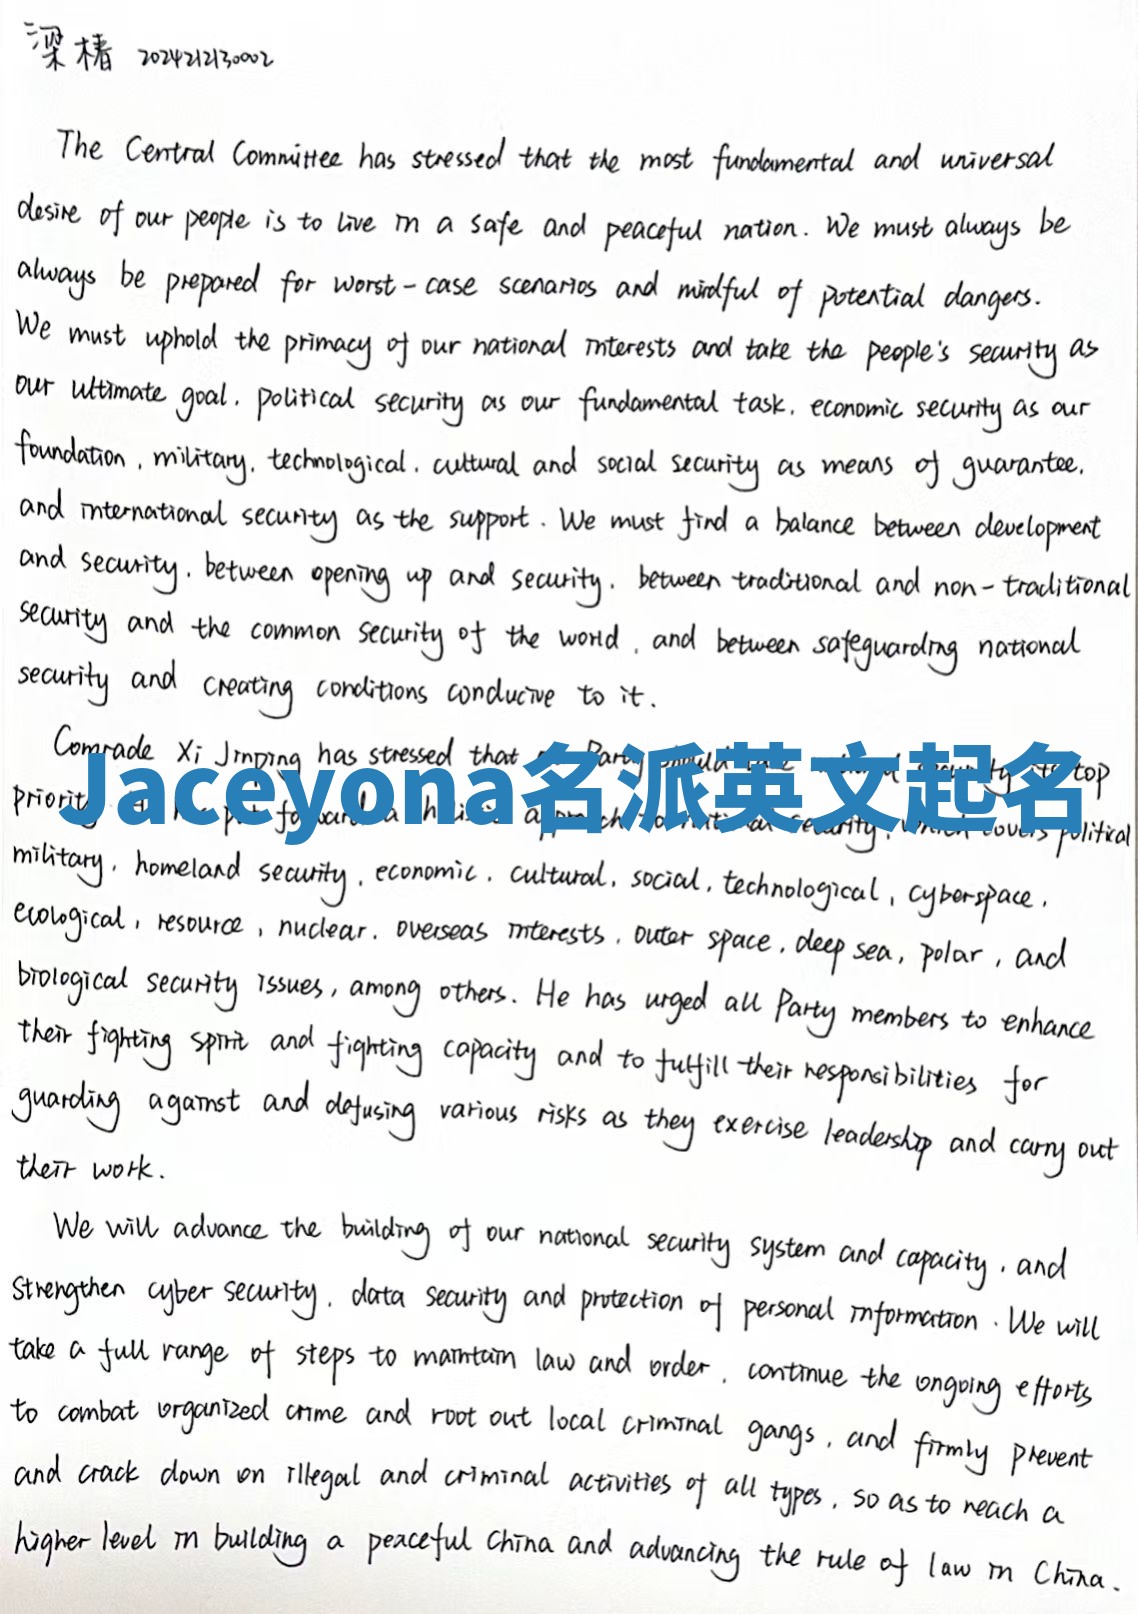 梁椿 2024212130002
The Central Committee has stressed that the most fundamental and universal
desire of our people is to live in a safe and peaceful nation. We must always be
always be prepared for worst-case scenarios and mindful of potential dangers.
We must uphold the primacy of our national interests and take the people's security as
our ultimate goal, political security as our fundamental task, economic security as our
foundation, military, technological, cultural and social security as means of guarantee,
and international security as the support. We must find a balance between development
and security, between opening up and security, between traditional and non-traditional
security and the common security of the world, and between safeguarding national
security and creating conditions conducive to it.
Comrade Xi Jinping has stressed that Party top
Jaceyona名派英文起名
priority a approach to national security, which covers political
military, homeland security, economic, cultural, social, technological, cyberspace,
ecological, resource, nuclear, overseas interests, outer space, deep sea, polar, and
biological security issues, among others. He has urged all Party members to enhance
their fighting spirit and fighting capacity and to fulfill their responsibilities for
guarding against and defusing various risks as they exercise leadership and carry out
their work.
We will advance the building of our national security system and capacity, and
strengthen cyber security, data security and protection of personal information. We will
take a full range of steps to maintain law and order, continue the ongoing efforts
to combat organized crime and root out local criminal gangs, and firmly prevent
and crack down on illegal and criminal activities of all types, so as to reach a
higher level in building a peaceful China and advancing the rule of law in China.